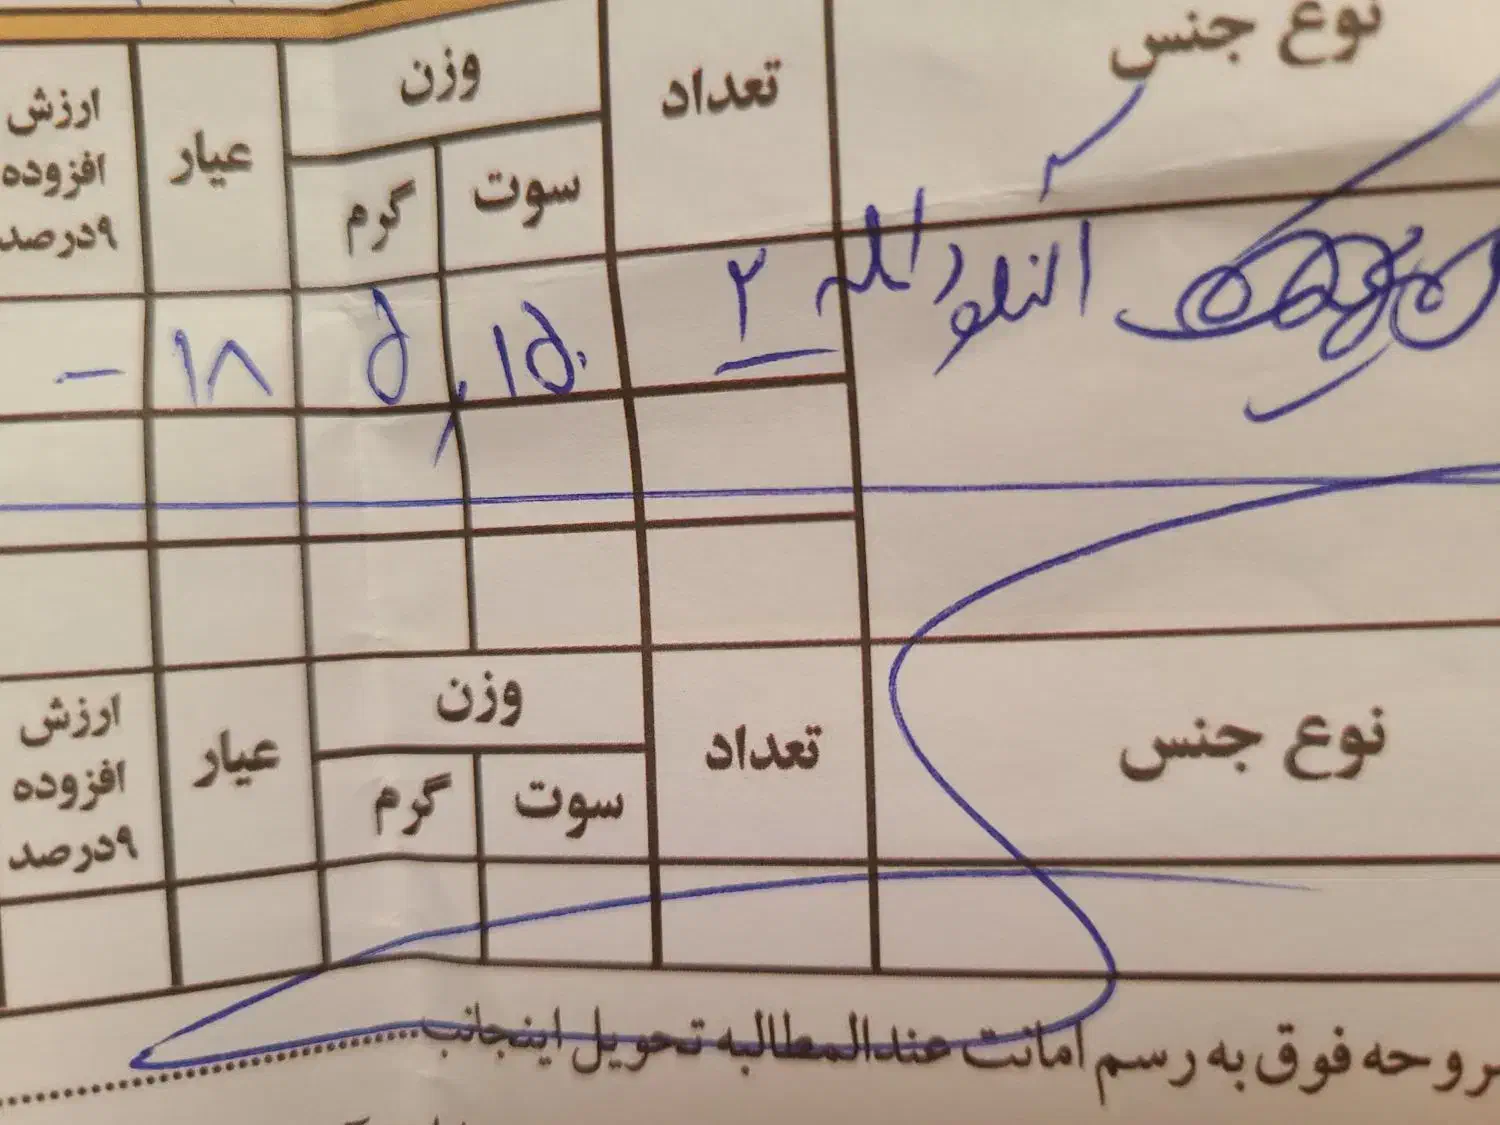 نوع جنس تعداد وزن عیار ارزش افزوده ۹درصد
سوت گرم
۲ ۱۵۰ , ۵ ۱۸ -
نوع جنس تعداد وزن عیار ارزش افزوده ۹درصد
سوت گرم
فوق به رسم امانت عندالمطالبه تحویل اینجانب